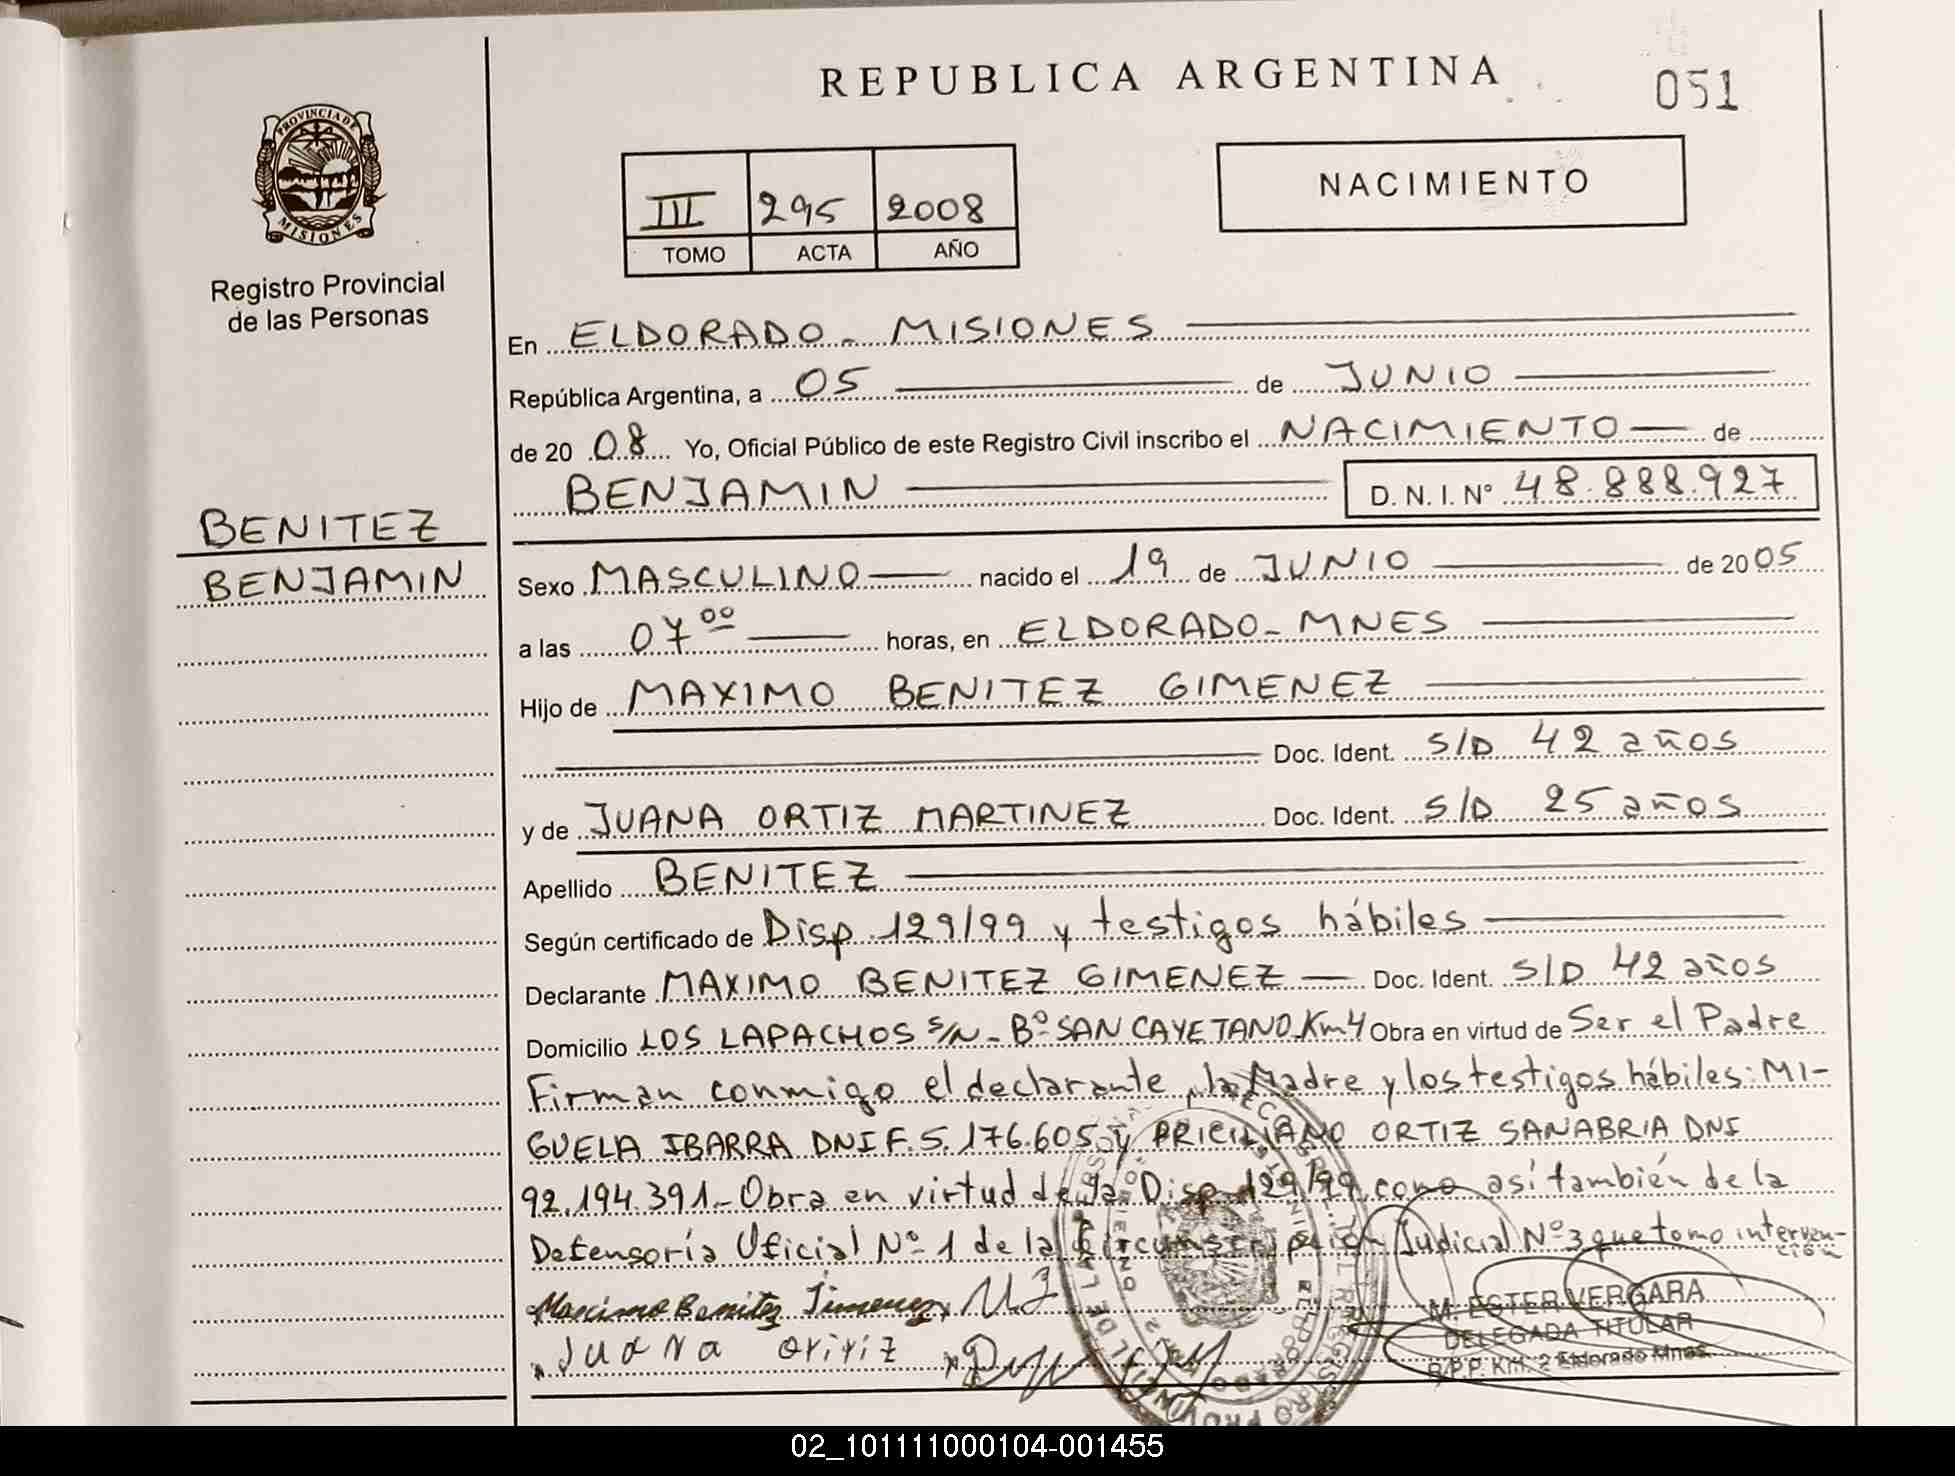 REPUBLICA ARGENTINA
051
PROVINCIA DE
MISIONES
Registro Provincial
de las Personas
III 295 2008
TOMO ACTA AÑO
NACIMIENTO
En ELDORADO - MISIONES
República Argentina, a 05 de JUNIO
de 20 08 Yo, Oficial Público de este Registro Civil inscribo el NACIMIENTO de
BENJAMIN D. N. I. Nº 48.888.927
BENITEZ
BENJAMIN
Sexo MASCULINO nacido el 19 de JUNIO de 2005
a las 07 00 horas, en ELDORADO - MNES
Hijo de MAXIMO BENITEZ GIMENEZ
Doc. Ident. S/D 42 años
y de JUANA ORTIZ MARTINEZ Doc. Ident. S/D 25 años
Apellido BENITEZ
Según certificado de Disp. 129/99 y testigos hábiles
Declarante MAXIMO BENITEZ GIMENEZ Doc. Ident. S/D 42 años
Domicilio LOS LAPACHOS S/N - Bº SAN CAYETANO Km 4 Obra en virtud de Ser el Padre
Firman conmigo el declarante, la Madre y los testigos hábiles: MI-
GUELA IBARRA DNI F. 5.176.605 y PRICILIANO ORTIZ SANABRIA DNI
92.194.391.- Obra en virtud de la Disp. 129/99 como así también de la
Defensoría Oficial Nº 1 de la Circunscripción Judicial Nº 3 que tomo interven-
ción
Maximo Benitez Jimenez M I
Juana Oritiz
M. ESTER VERGARA
DELEGADA TITULAR
R.P.P. Km. 2 Eldorado Mnes.
02_101111000104-001455